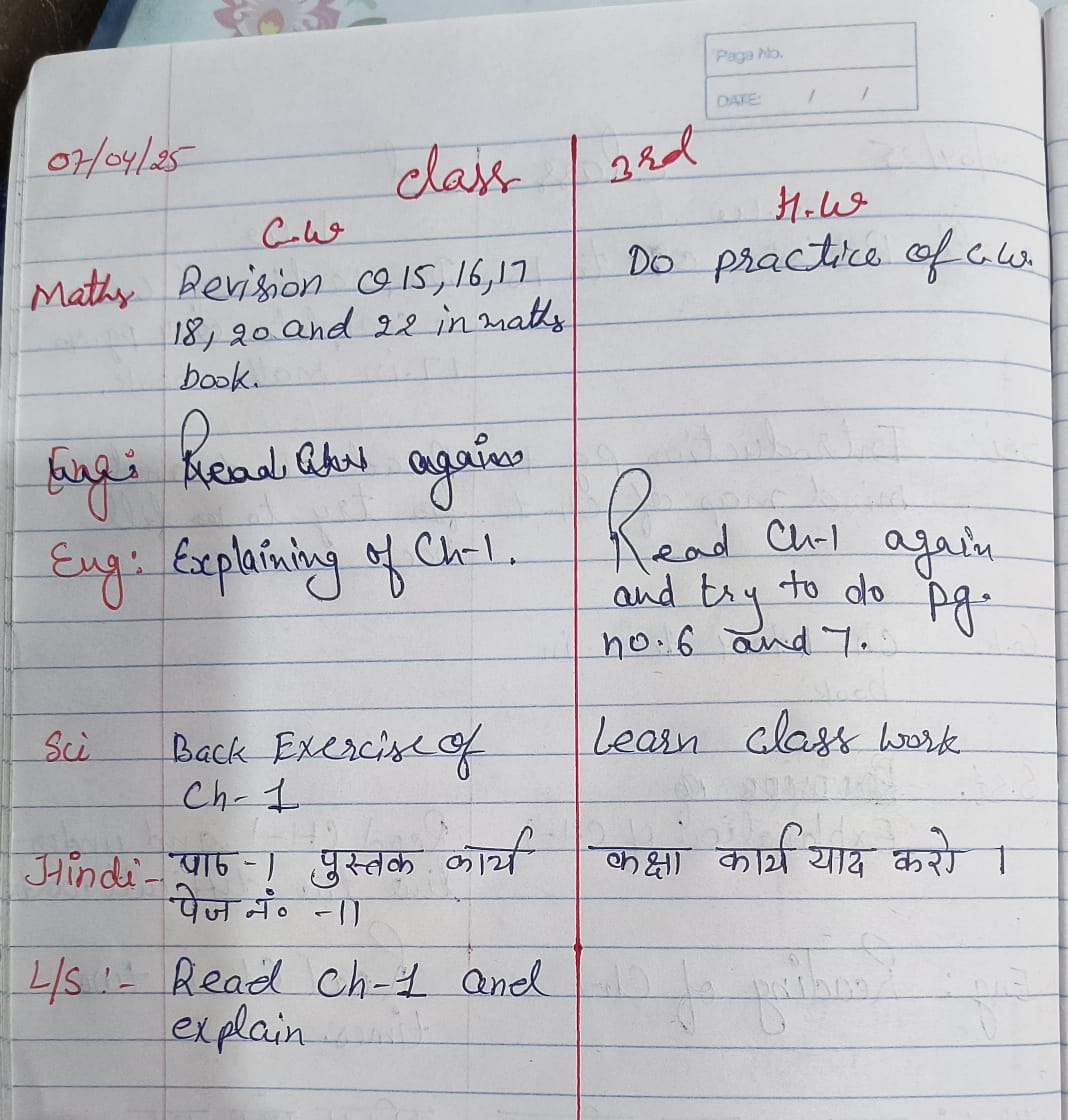 Page No.
DATE: / /
07/04/25
class 3rd
C.W
H.W
Maths Revision Q 15, 16, 17
18, 20 and 22 in maths
book.
Do practice of C.W.
Eng: Read again
Eng: Explaining of Ch-1.
Read Ch-1 again
and try to do pg.
no. 6 and 7.
Sci Back Exercise of
Ch-1
Learn class work
Hindi- पाठ-1 पुस्तक कार्य
पेज नं० -11
कक्षा कार्य याद करो ।
L/S :- Read Ch-1 and
explain